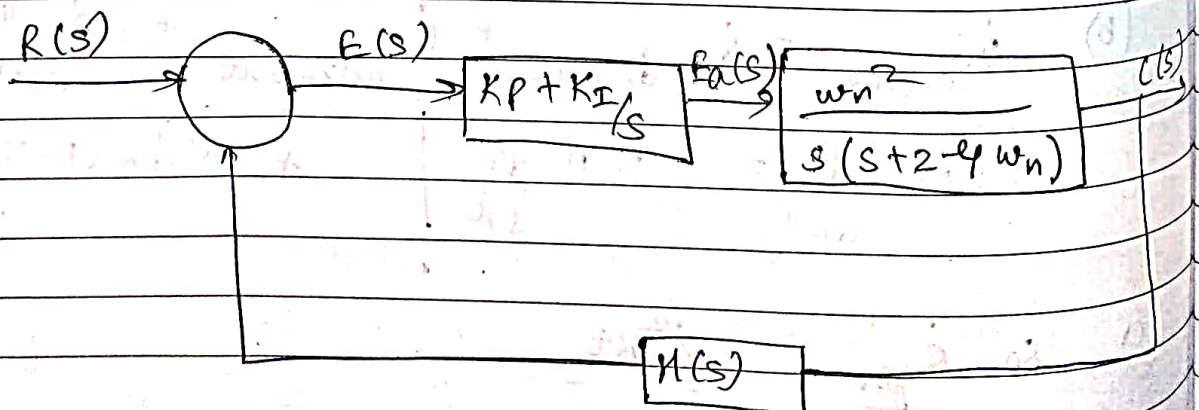 R(S)
E(S)
KP + KI/s
Ea(S)
wn²
s (S+2 ξ wn)
C(S)
H(S)